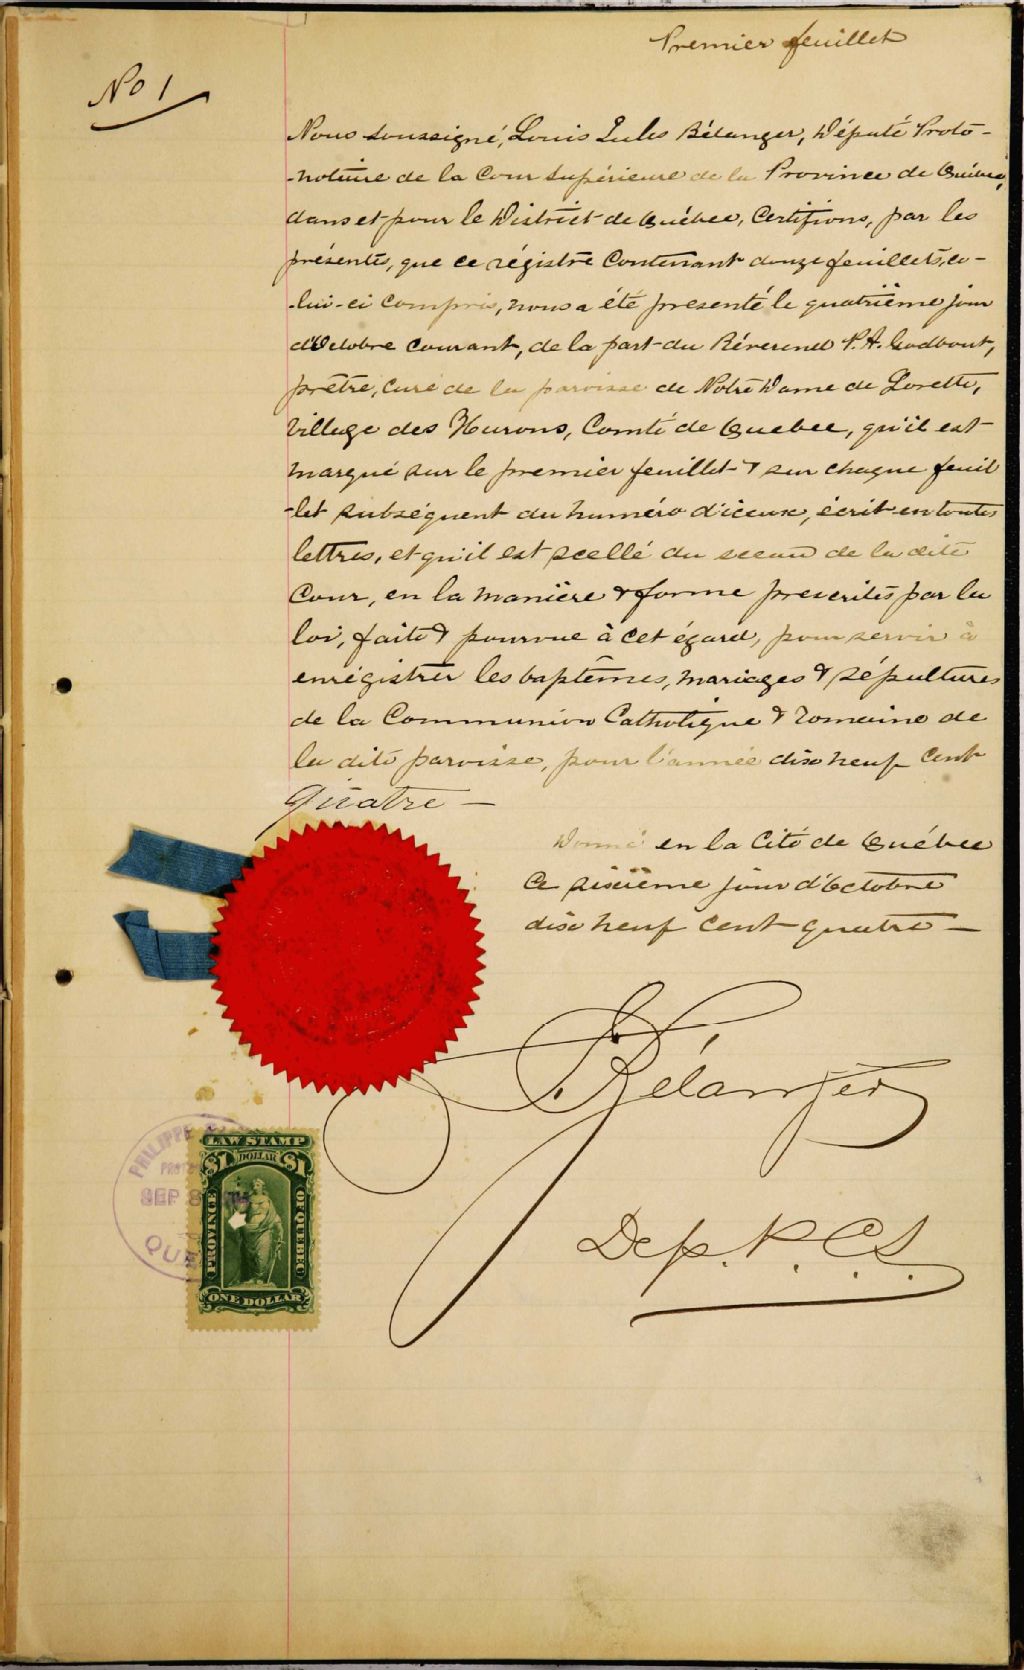 Premier feuillet
No 1
Nous soussigné, Louis Jules Bélanger, Député Proto-
-notaire de la Cour Supérieure de la Province de Québec,
dans et pour le District de Québec, Certifions, par les
présentes, que ce régistre contenant douze feuillets, ce-
-lui-ci compris, nous a été presenté le quatrième jour
d'Octobre courant, de la part du Réverend P. A. Godbout,
prêtre, curé de la paroisse de Notre Dame de Lorette,
village des Hurons, Comté de Quebec, qu'il est
marqué sur le premier feuillet & sur chaque feuil
-let subséquent du numéro d'iceux, écrit en toutes
lettres, et qu'il est scellé du sceau de la dite
Cour, en la manière & forme prescrites par la
loi, faite & pourvue à cet égard, pour servir à
enrégistrer les baptêmes, mariages & sépultures
de la Communion Catholique & romaine de
la dite paroisse, pour l'année dix neuf cent
quatre —
Donné en la Cité de Québec
ce sixième jour d'Octobre
dix neuf cent quatre —
Bélanger
Dep. P. C. S.
PHILIPPE
SEP 8
QUE
LAW STAMP
$1 DOLLAR $1
PROVINCE
OF QUEBEC
ONE DOLLAR